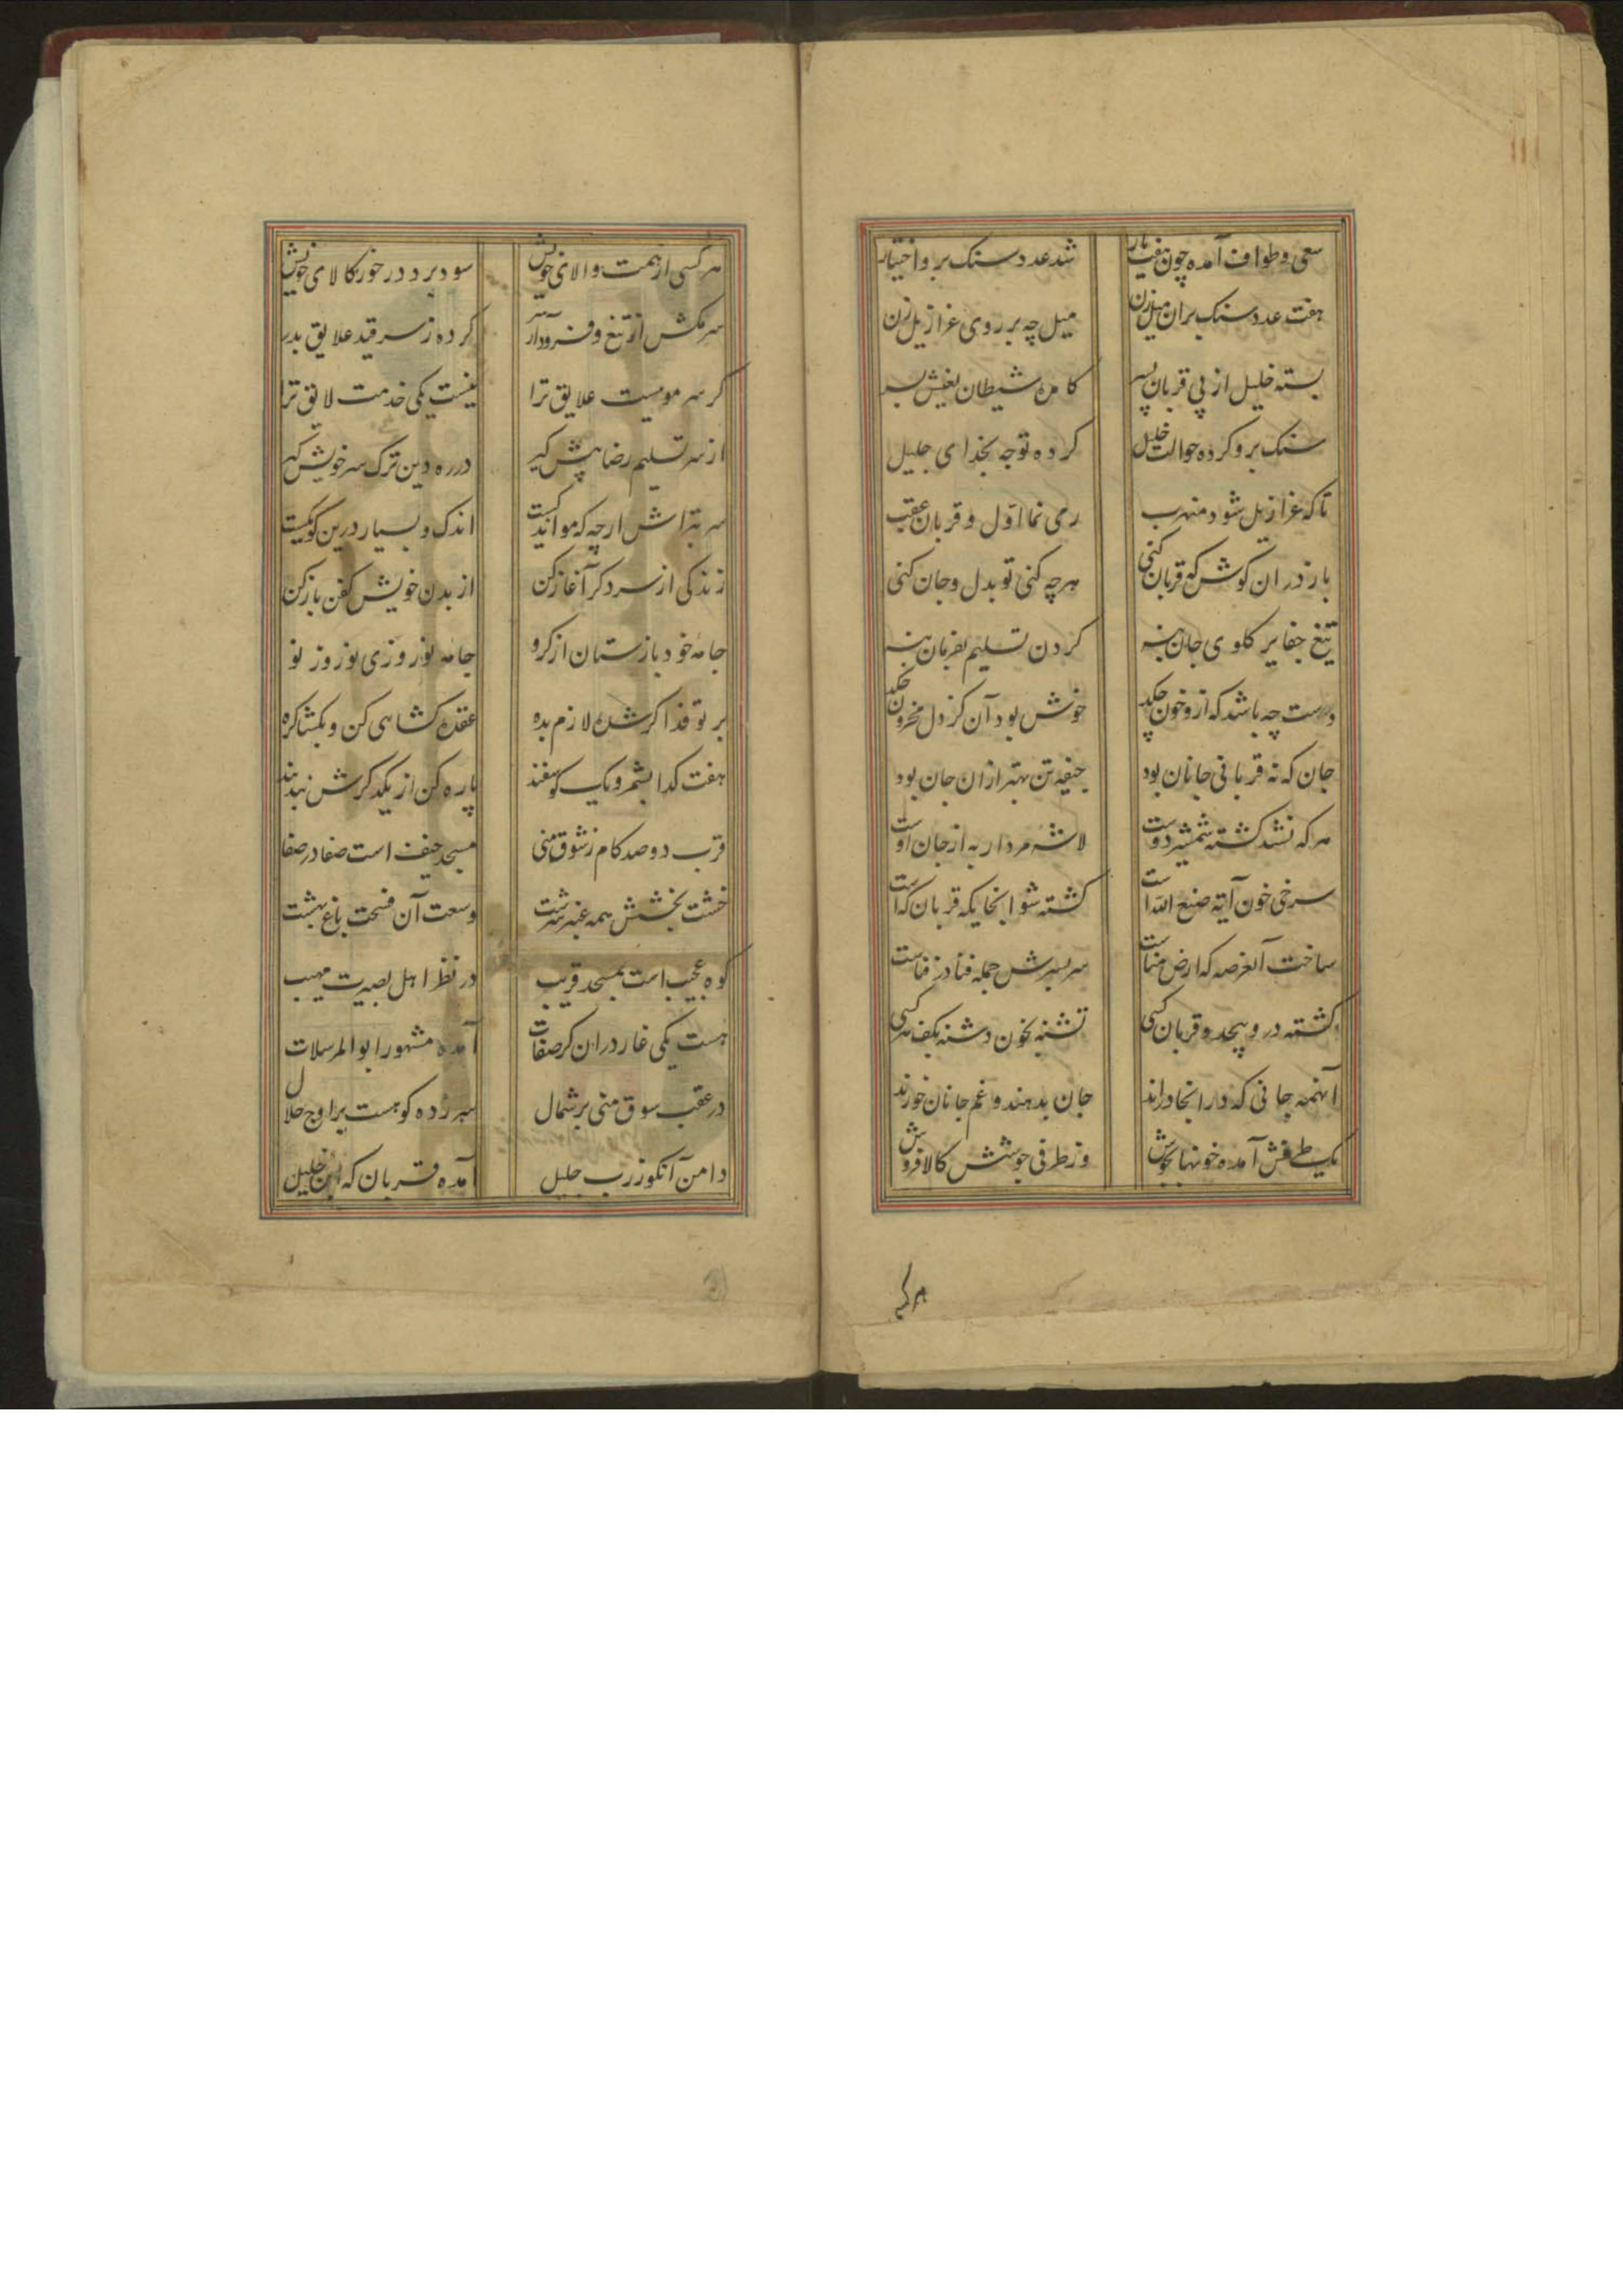 سعی و طواف آمده چون هفت بار شد عدد سنک برو اختیار
هفت عدد سنک بران میل زن میل چه بر روی عزازیل زن
بسته خلیل از پی قربان پسر کامده شیطان بغیش بسر
سنک برو کرده حوالت خلیل کرده توجه بخدای جلیل
تا که عزازیل شود منهرب رمی نما اول و قربان عقب
باز دران کوش که قربان کنی هرچه کنی تو بدل و جان کنی
تیغ جفا بر کلوی جان بنه کردن تسلیم بفرمان بنه
دست چه باشد که ازو خون چکد خوش بود آن کز دل محزون چکد
جان که نه قربانی جانان بود جیفه تن بهتر ازان جان بود
هر که نشد کشته شمشیر دوست لاشه مردار به از جان اوست
سرخی خون آیه صنع الله است کشته شو اینجا یکه قربان که است
ساخت آنعرصه که ارض مناست سر بسرش جمله فنا در فناست
کشته درو بیحد و قربان کسی تشنه بخون دشنه بکف هر کسی
اینهمه جانی که در اینجا درند جان بدهند و غم جانان خورند
یک طرفش آمده خونها بجوش وز طرفی جوشش کالا فروش
هر کسی
هر کسی از همت والای خویش سود برد در خور کالای خویش
سر مکش از تیغ و فرود آر سر کرده ز سر قید علایق بدر
کر سر موییست علایق ترا نیست یکی خدمت لایق ترا
از سر تسلیم رضا پیش کیر در ره دین ترک سر خویش کیر
سر بتراش ارچه که مو اندکیست اندک و بسیار درین کو یکیست
زندکی از سر دکر آغاز کن از بدن خویش کفن باز کن
جامه خود باز ستان از کرو جامه نوروزی نوروز نو
بر تو فدا کر شده لازم بده عقده کشاهی کن و بکشا کره
هفت کدا بشمر و یک کوسفند پاره کن از یکدکرش بند بند
قرب دو صد کام ز سوق منی مسجد خیف است صفا در صفا
خشت بخشتش همه عنبر سرشت وسعت آن فسحت باغ بهشت
کوه عجیب است بمسجد قریب در نظر اهل بصیرت مهیب
هست یکی غار دران کز صفات آمده مشهور ابو المرسلات
در عقب سوق منی بر شمال سر زده کوهست بر اوج جلال
دامن آنکوز رب جلیل آمده قربان که ابن خلیل